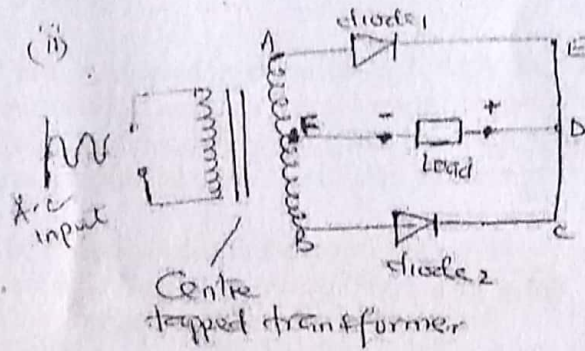 (ii)
diode1
A
E
E
-
+
D
Load
A.c
input
B
C
diode2
Centre
tapped transformer